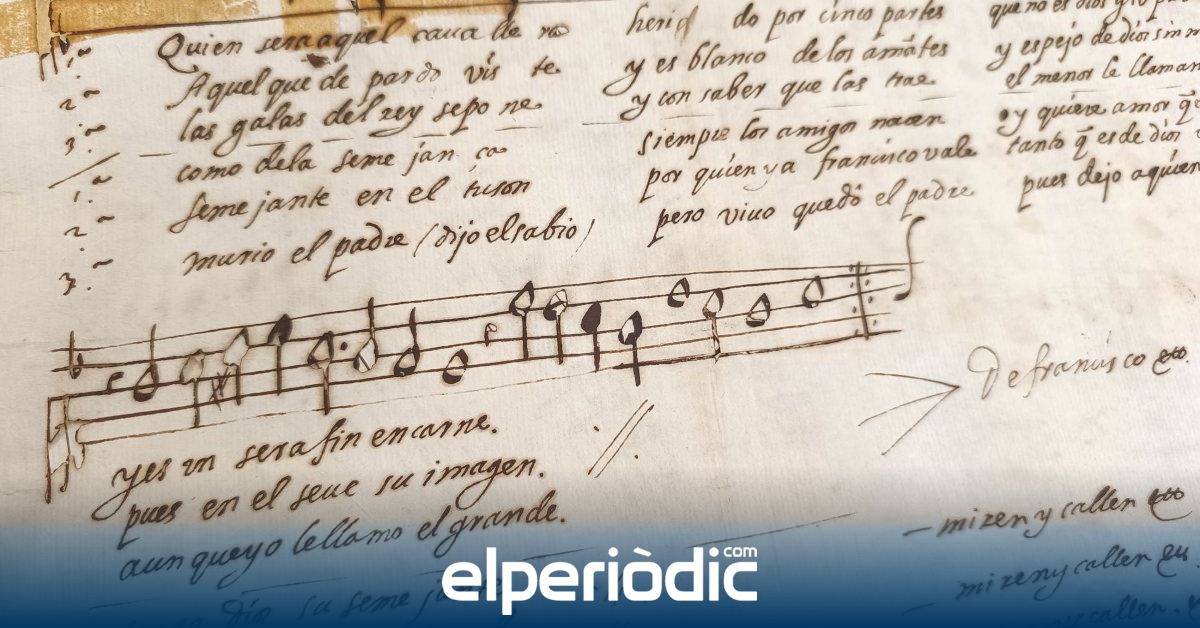 1.ª Quien sera aquel cavalle ro
2.ª Aquel que de pardo vis te
3.ª las galas del rey se pone
1.ª como dela seme jan ça
2.ª semejante en el tuson
3.ª murio el padre (dijo el sabio)
herid do por cinco partes
y es blanco de los amātes
y con saber que las trae
siempre los amigos nacen
por quien ya francisco vale
pero vivo quedò el padre
que no es dios
y espejo de dios sin m
el menor le llaman
oy quiere amor q̄
tanto q̄ es de dios
pues dejo aquien
yes un serafin en carne.
pues en el seve su imagen.
aun que yo le llamo el grande.
Dio su seme
De francisco &co.
- miren y callen &co
miren y callen
callen.
elperiòdic.com